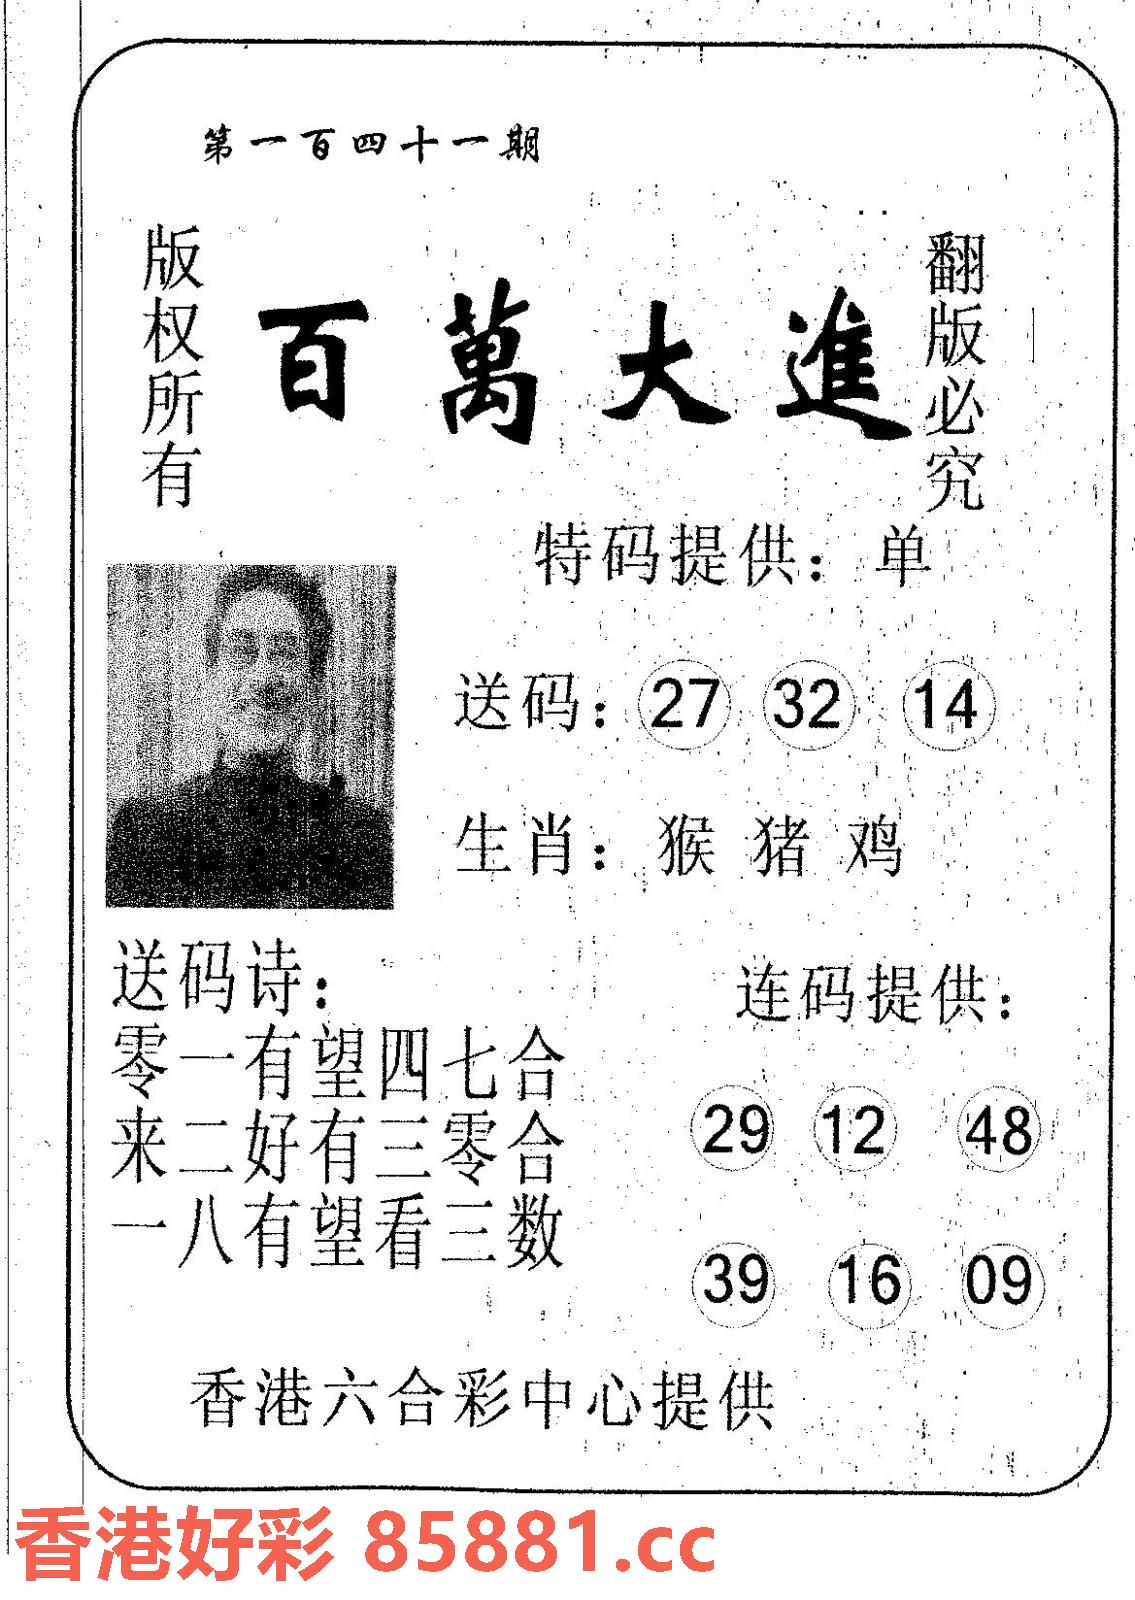 第一百四十一期
版权所有
百萬大進
翻版必究
特码提供：单
送码：27 32 14
生肖：猴 猪 鸡
送码诗：
零一有望四七合
来二好有三零合
一八有望看三数
连码提供：
29 12 48
39 16 09
香港六合彩中心提供
香港好彩 85881.cc